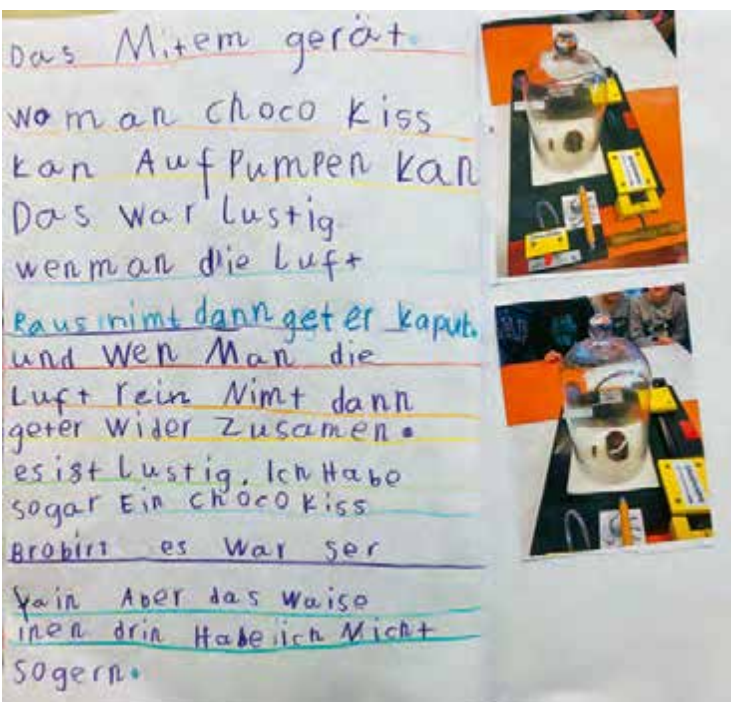 Das Mitem gerät.
wo man choco Kiss
kan Auf Pumpen kan
Das war lustig
wenman die Luft
Raus nimt dann get er kaput.
und wen Man die
Luft rein Nimt dann
geter wider Zusamen.
es ist Lustig. Ich Habe
sogar Ein choco Kiss
Brobirt es war ser
Vain Aber das waise
inen drin Habe ich Nicht
so gern.